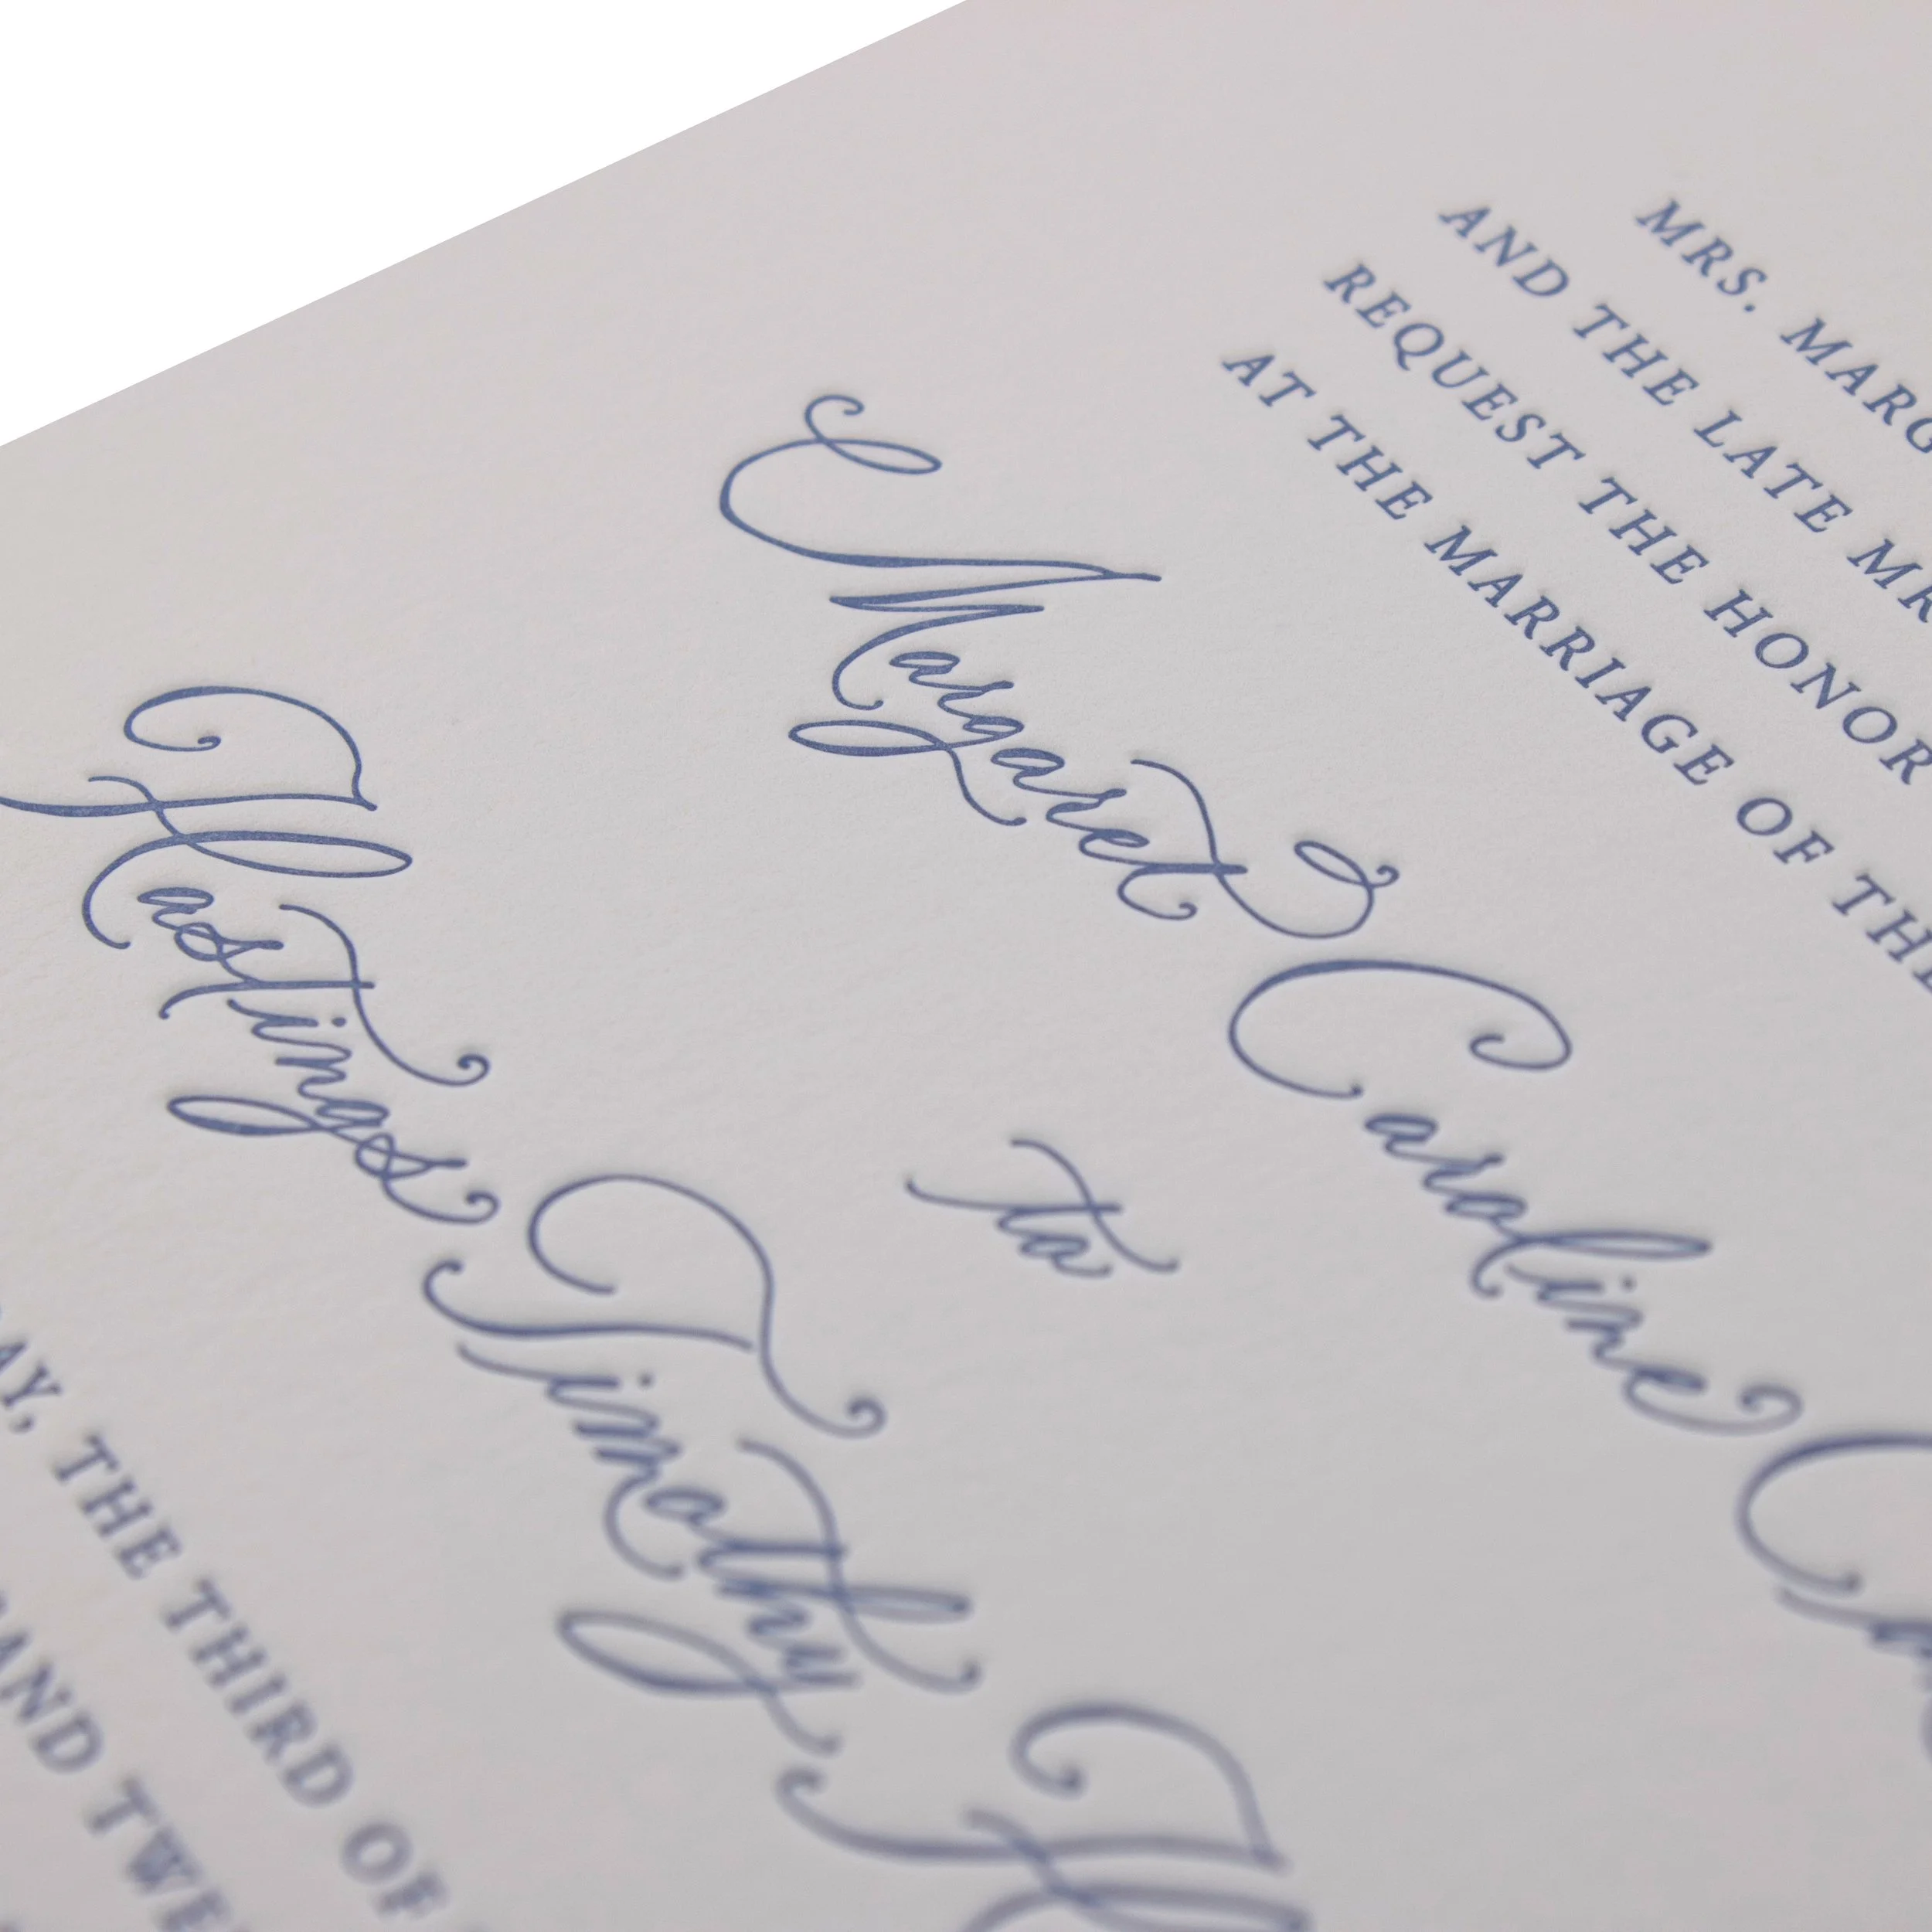 MRS. MARG
AND THE LATE MR
REQUEST THE HONOR
AT THE MARRIAGE OF THE
Margaret Caroline
to
Hastings Timothy
AY, THE THIRD OF
AND TWE